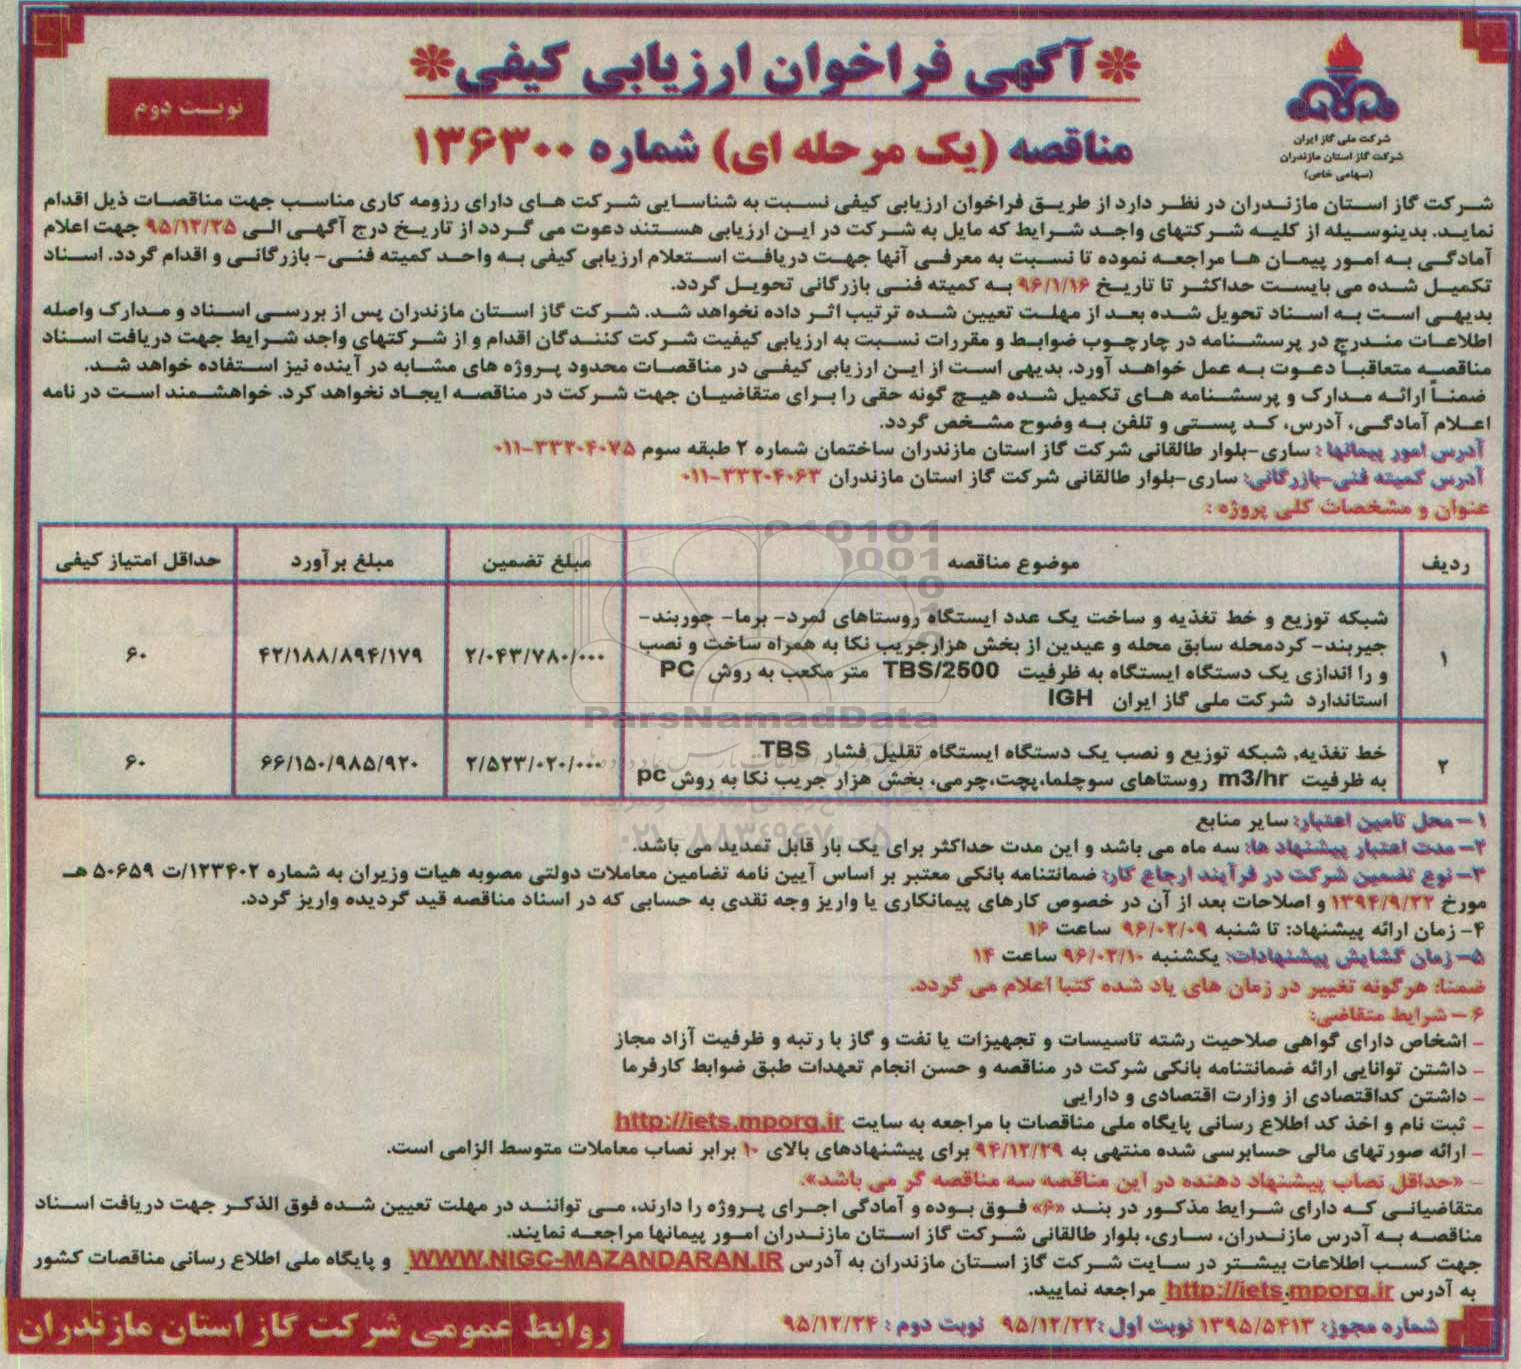 ❋آگهی فراخوان ارزیابی کیفی❋
نوبت دوم
مناقصه (یک مرحله ای) شماره ۱۳۶۳۰۰
شرکت ملی گاز ایران
شرکت گاز استان مازندران
(سهامی خاص)
شرکت گاز استان مازندران در نظر دارد از طریق فراخوان ارزیابی کیفی نسبت به شناسایی شرکت های دارای رزومه کاری مناسب جهت مناقصات ذیل اقدام
نماید. بدینوسیله از کلیه شرکتهای واجد شرایط که مایل به شرکت در این ارزیابی هستند دعوت می گردد از تاریخ درج آگهی الی ۹۵/۱۲/۲۵ جهت اعلام
آمادگی به امور پیمان ها مراجعه نموده تا نسبت به معرفی آنها جهت دریافت استعلام ارزیابی کیفی به واحد کمیته فنی- بازرگانی و اقدام گردد. اسناد
تکمیل شده می بایست حداکثر تا تاریخ ۹۶/۱/۱۶ به کمیته فنی بازرگانی تحویل گردد.
بدیهی است به اسناد تحویل شده بعد از مهلت تعیین شده ترتیب اثر داده نخواهد شد. شرکت گاز استان مازندران پس از بررسی اسناد و مدارک واصله
اطلاعات مندرج در پرسشنامه در چارچوب ضوابط و مقررات نسبت به ارزیابی کیفیت شرکت کنندگان اقدام و از شرکتهای واجد شرایط جهت دریافت اسناد
مناقصه متعاقباً دعوت به عمل خواهد آورد. بدیهی است از این ارزیابی کیفی در مناقصات محدود پروژه های مشابه در آینده نیز استفاده خواهد شد.
ضمناً ارائه مدارک و پرسشنامه های تکمیل شده هیچ گونه حقی را برای متقاضیان جهت شرکت در مناقصه ایجاد نخواهد کرد. خواهشمند است در نامه
اعلام آمادگی، آدرس، کد پستی و تلفن به وضوح مشخص گردد.
آدرس امور پیمانها : ساری-بلوار طالقانی شرکت گاز استان مازندران ساختمان شماره ۲ طبقه سوم ۳۳۲۰۴۰۷۵-۰۱۱
آدرس کمیته فنی-بازرگانی: ساری-بلوار طالقانی شرکت گاز استان مازندران ۳۳۲۰۴۰۶۳-۰۱۱
عنوان و مشخصات کلی پروژه :
ردیف موضوع مناقصه مبلغ تضمین مبلغ برآورد حداقل امتیاز کیفی
شبکه توزیع و خط تغذیه و ساخت یک عدد ایستگاه روستاهای لمرد- برما- چوربند-
جیربند- کردمحله سابق محله و عیدین از بخش هزارجریب نکا به همراه ساخت و نصب
۱ ۲/۰۴۳/۷۸۰/۰۰۰ ۴۲/۱۸۸/۸۹۴/۱۷۹ ۶۰
و را اندازی یک دستگاه ایستگاه به ظرفیت TBS/2500 متر مکعب به روش PC
استاندارد شرکت ملی گاز ایران IGH
خط تغذیه, شبکه توزیع و نصب یک دستگاه ایستگاه تقلیل فشار TBS
۲ ۲/۵۲۳/۰۲۰/۰۰۰ ۶۶/۱۵۰/۹۸۵/۹۲۰ ۶۰
به ظرفیت m3/hr روستاهای سوچلما،پچت،چرمی، بخش هزار جریب نکا به روش pc
ParsNamadData
۰۲۱-۸۸۳۴۹۶۷۰-۵
۱- محل تامین اعتبار: سایر منابع
۲- مدت اعتبار پیشنهاد ها: سه ماه می باشد و این مدت حداکثر برای یک بار قابل تمدید می باشد.
۳- نوع تضمین شرکت در فرآیند ارجاع کار: ضمانتنامه بانکی معتبر بر اساس آیین نامه تضامین معاملات دولتی مصوبه هیات وزیران به شماره ۱۲۳۴۰۲/ت ۵۰۶۵۹ هـ
مورخ ۱۳۹۴/۹/۲۲ و اصلاحات بعد از آن در خصوص کارهای پیمانکاری یا واریز وجه نقدی به حسابی که در اسناد مناقصه قید گردیده واریز گردد.
۴- زمان ارائه پیشنهاد: تا شنبه ۹۶/۰۲/۰۹ ساعت ۱۶
۵- زمان گشایش پیشنهادات: یکشنبه ۹۶/۰۲/۱۰ ساعت ۱۴
ضمنا: هرگونه تغییر در زمان های یاد شده کتبا اعلام می گردد.
۶ - شرایط متقاضی:
- اشخاص دارای گواهی صلاحیت رشته تاسیسات و تجهیزات یا نفت و گاز با رتبه و ظرفیت آزاد مجاز
- داشتن توانایی ارائه ضمانتنامه بانکی شرکت در مناقصه و حسن انجام تعهدات طبق ضوابط کارفرما
- داشتن کداقتصادی از وزارت اقتصادی و دارایی
- ثبت نام و اخذ کد اطلاع رسانی پایگاه ملی مناقصات با مراجعه به سایت http://iets.mporg.ir
- ارائه صورتهای مالی حسابرسی شده منتهی به ۹۴/۱۲/۲۹ برای پیشنهادهای بالای ۱۰ برابر نصاب معاملات متوسط الزامی است.
- «حداقل نصاب پیشنهاد دهنده در این مناقصه سه مناقصه گر می باشد».
متقاضیانی که دارای شرایط مذکور در بند «۶» فوق بوده و آمادگی اجرای پروژه را دارند، می توانند در مهلت تعیین شده فوق الذکر جهت دریافت اسناد
مناقصه به آدرس مازندران، ساری، بلوار طالقانی شرکت گاز استان مازندران امور پیمانها مراجعه نمایند.
جهت کسب اطلاعات بیشتر در سایت شرکت گاز استان مازندران به آدرس WWW.NIGC-MAZANDARAN.IR و پایگاه ملی اطلاع رسانی مناقصات کشور
به آدرس http://iets.mporg.ir مراجعه نمایید.
شماره مجوز: ۱۳۹۵/۵۴۱۳ نوبت اول :۹۵/۱۲/۲۲ نوبت دوم : ۹۵/۱۲/۲۴
روابط عمومی شرکت گاز استان مازندران